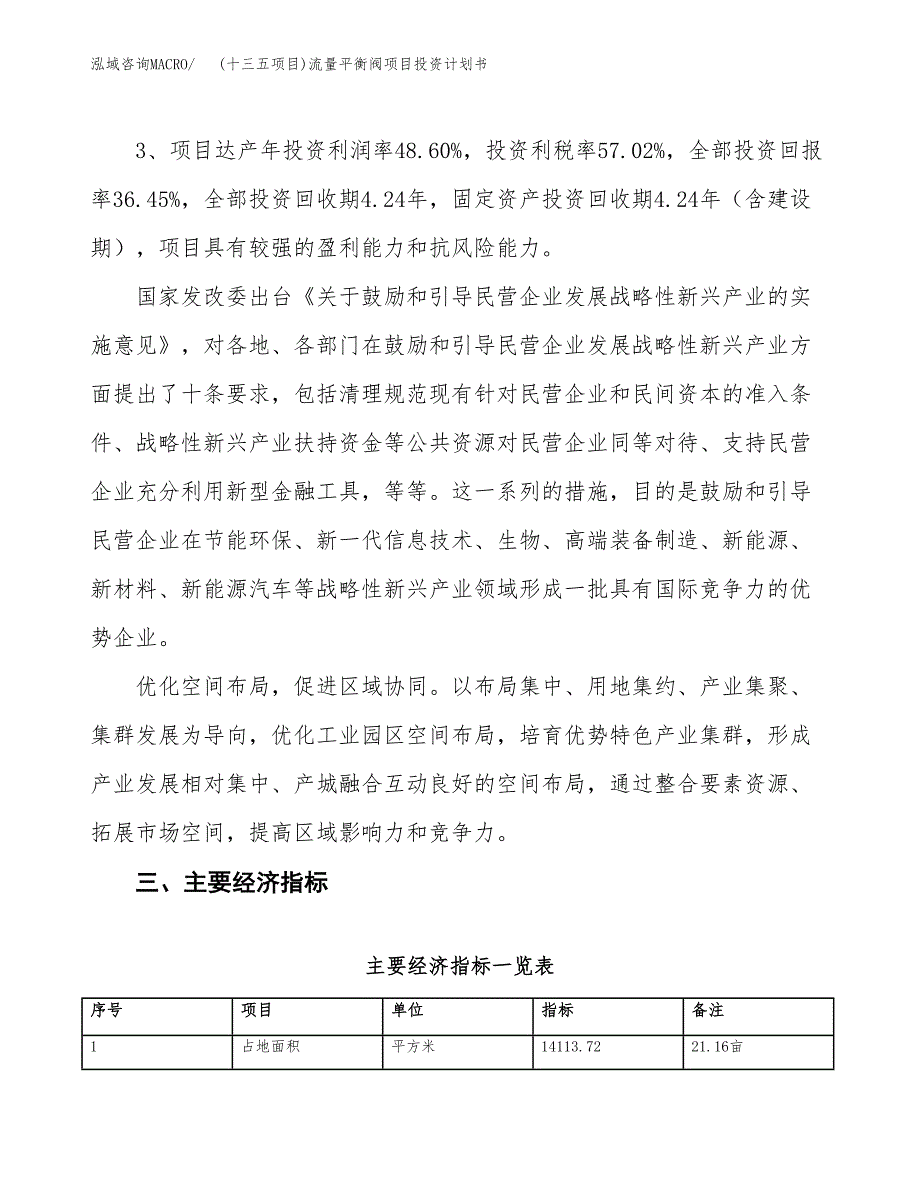 泓域咨询MACRO/ (十三五项目)流量平衡阀项目投资计划书
3、项目达产年投资利润率48.60%，投资利税率57.02%，全部投资回报
率36.45%，全部投资回收期4.24年，固定资产投资回收期4.24年（含建设
期），项目具有较强的盈利能力和抗风险能力。
国家发改委出台《关于鼓励和引导民营企业发展战略性新兴产业的实
施意见》，对各地、各部门在鼓励和引导民营企业发展战略性新兴产业方
面提出了十条要求，包括清理规范现有针对民营企业和民间资本的准入条
件、战略性新兴产业扶持资金等公共资源对民营企业同等对待、支持民营
企业充分利用新型金融工具，等等。这一系列的措施，目的是鼓励和引导
民营企业在节能环保、新一代信息技术、生物、高端装备制造、新能源、
新材料、新能源汽车等战略性新兴产业领域形成一批具有国际竞争力的优
势企业。
优化空间布局，促进区域协同。以布局集中、用地集约、产业集聚、
集群发展为导向，优化工业园区空间布局，培育优势特色产业集群，形成
产业发展相对集中、产城融合互动良好的空间布局，通过整合要素资源、
拓展市场空间，提高区域影响力和竞争力。
三、主要经济指标
主要经济指标一览表
序号 项目 单位 指标 备注
1 占地面积 平方米 14113.72 21.16亩